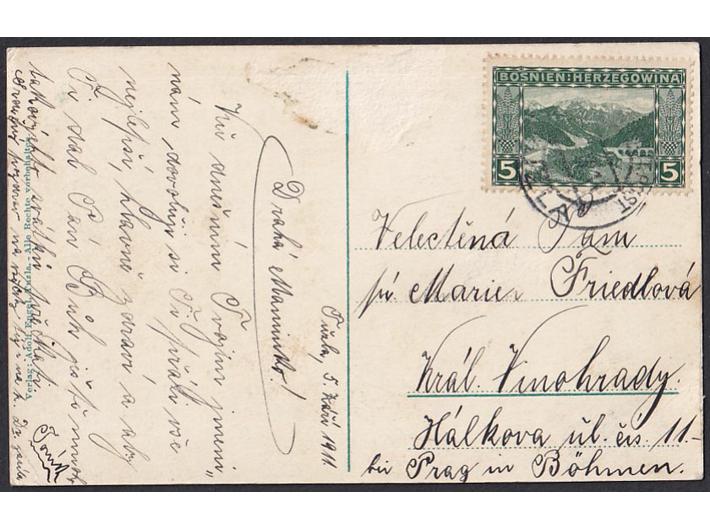 BOSNIEN-HERZEGOWINA
5 5
Velectěná Paní
pí Marie Friedlová
Král. Vinohrady.
Hálkova úl. čís 11-
bei Prag in Böhmen.
Tuzla, 5. Září 1911.
Drahá Maminko!
Ku dnešním Trojím jmeni„
nám, dovoluji si Ti přáti vše
nejlepší, hlavně zdraví a aby
Ti dal Pán Bůh ještě mnoho
Tóník
Alle Rechte vorbehalten